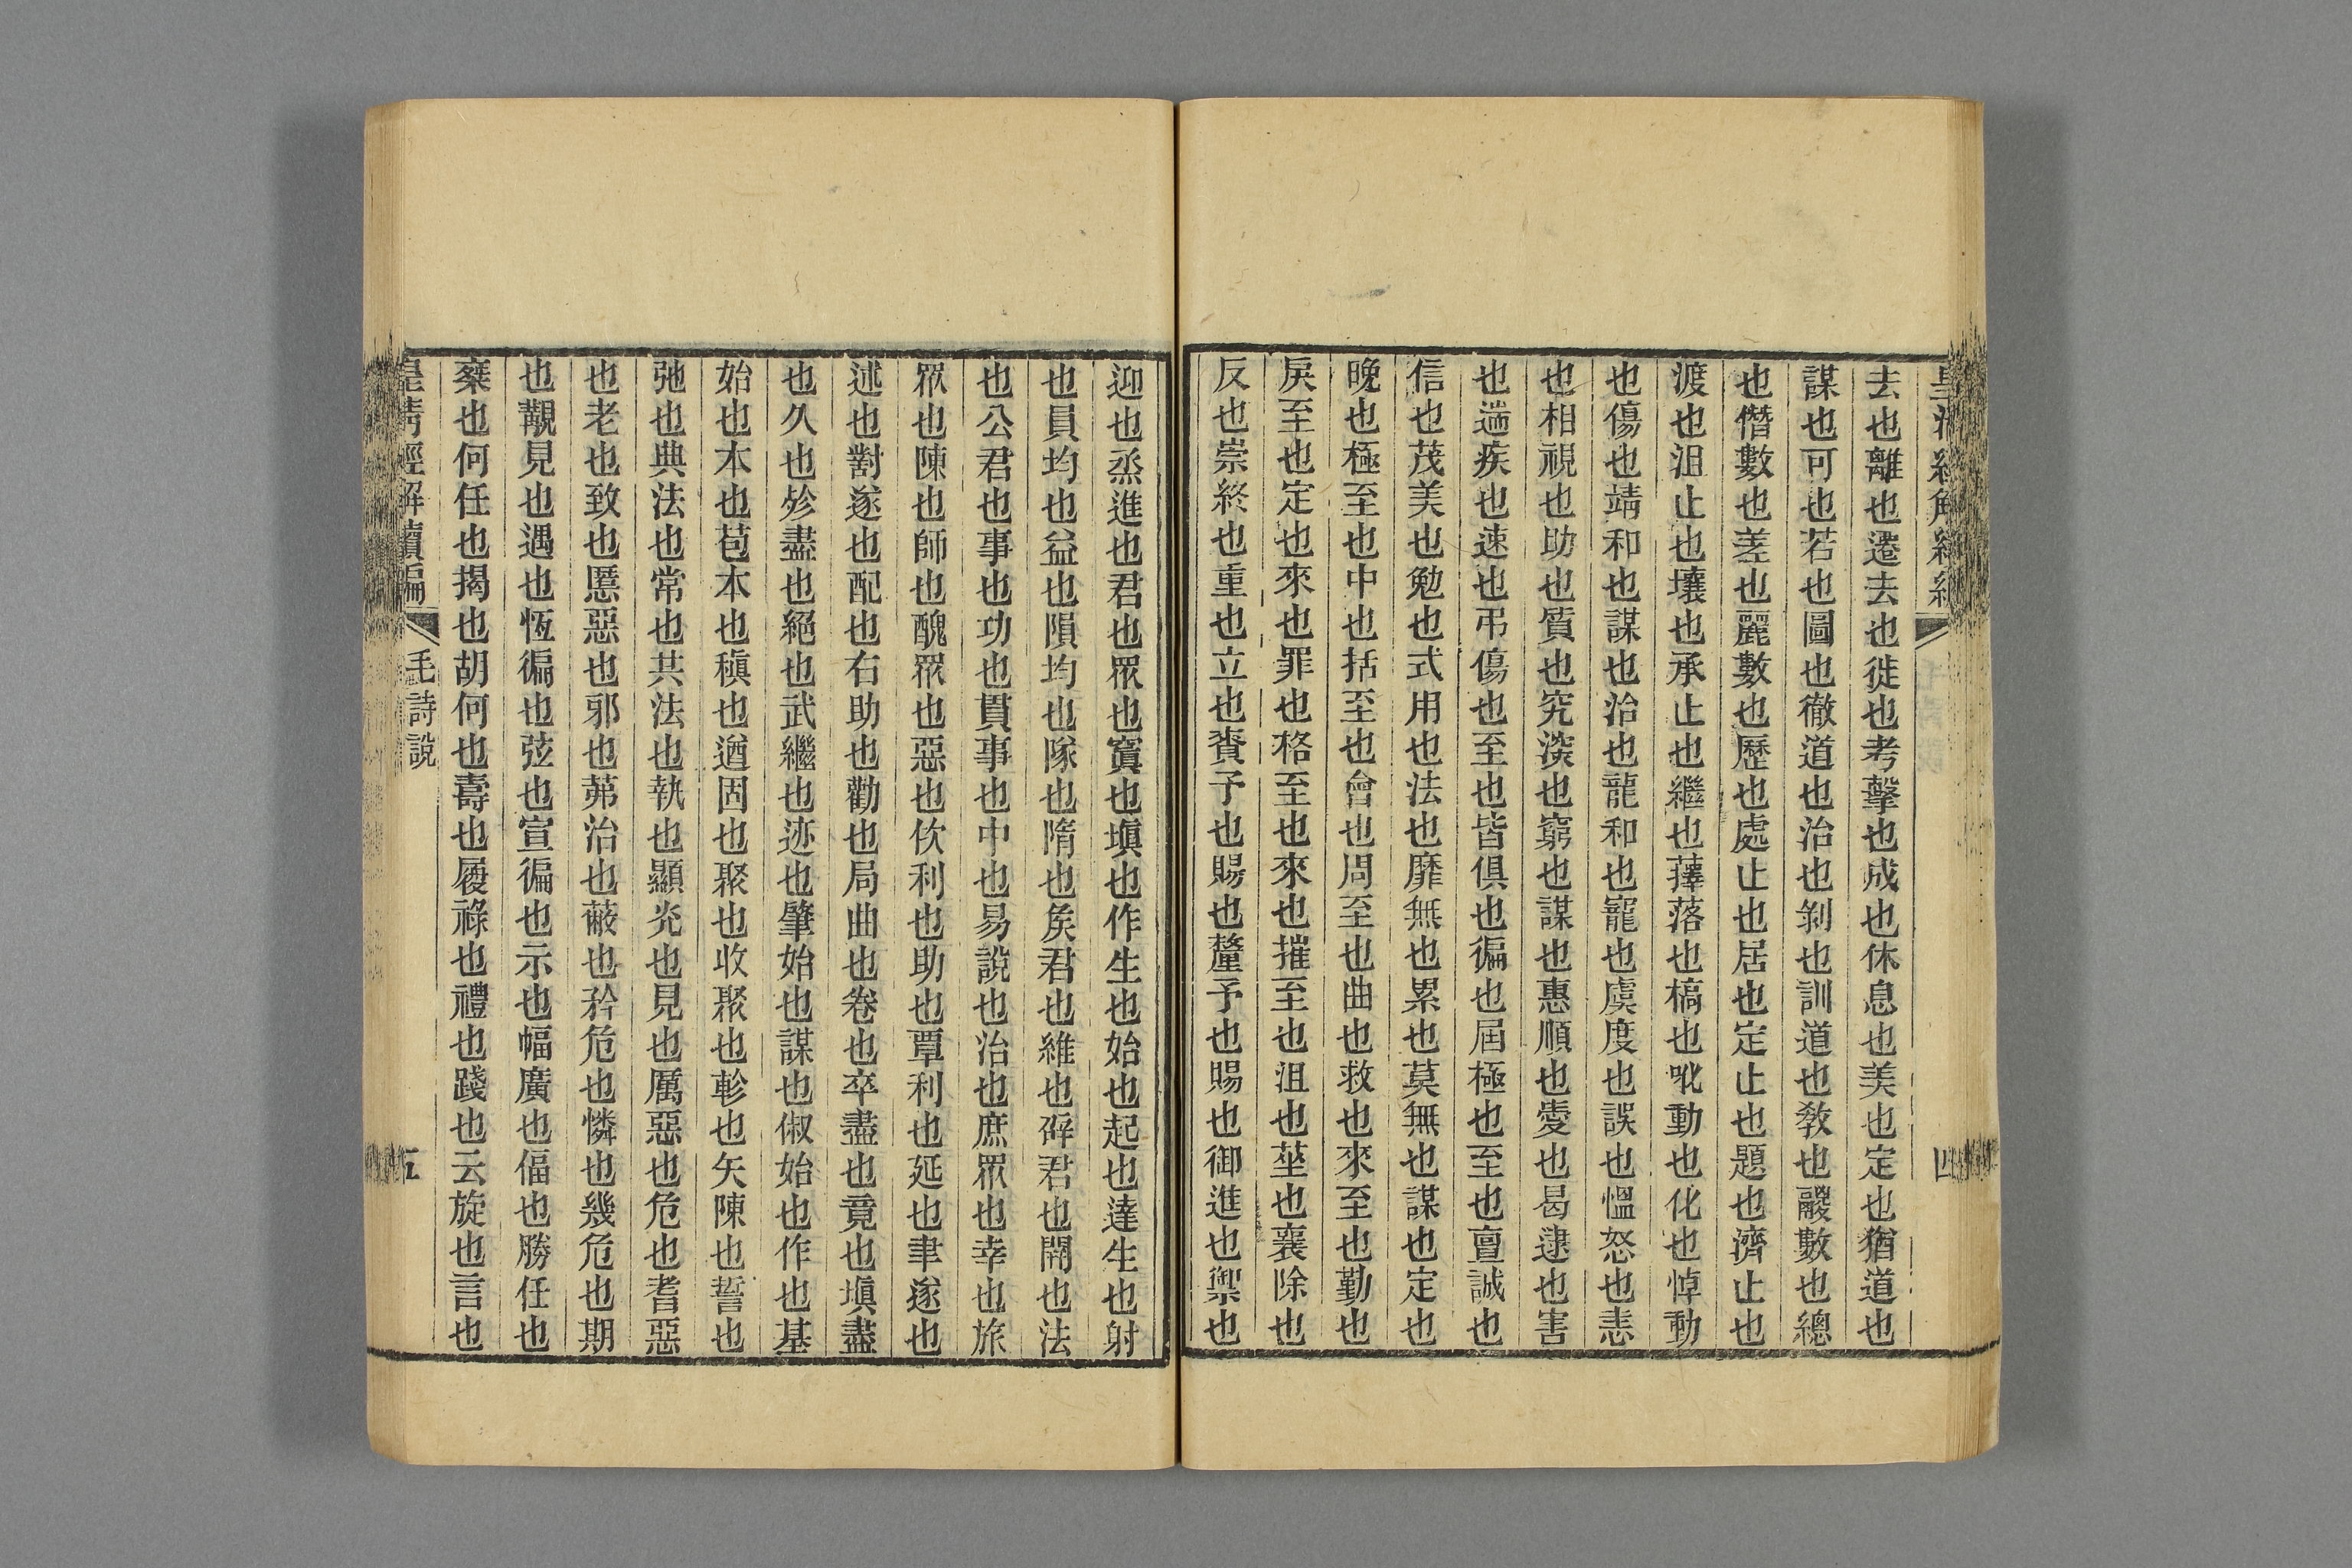 去也離也遷去也徙也考擊也成也休息也美也定也猶道也
謀也可也若也圖也徹道也治也剝也訓道也敎也鬷數也總
也僭數也差也麗數也歷也處止也居也定止也題也濟止也
渡也沮止也壤也承止也繼也蘀落也槁也吪動也化也悼動
也傷也靖和也謀也治也龍和也寵也虞度也誤也慍怒也恚
也相視也助也質也究深也窮也謀也惠順也愛也曷逮也害
也遄疾也速也弔傷也至也皆俱也徧也屆極也至也亶誠也
信也茂美也勉也式用也法也靡無也累也莫無也謀也定也
晚也極至也中也括至也會也周至也曲也救也來至也勤也
戾至也定也來也罪也格至也來也摧至也沮也莝也襄除也
反也崇終也重也立也賚予也賜也釐予也賜也御進也禦也
迎也烝進也君也眾也窴也塡也作生也始也起也達生也射
也員均也益也隕均也隊也隋也矦君也維也辟君也開也法
也公君也事也功也貫事也中也易說也治也庶眾也幸也旅
眾也陳也師也醜眾也惡也佽利也助也覃利也延也聿遂也
述也對遂也配也右助也勸也局曲也卷也卒盡也竟也塡盡
也久也殄盡也絕也武繼也迹也肇始也謀也俶始也作也基
始也本也苞本也稹也遒固也聚也收聚也軫也矢陳也誓也
弛也典法也常也共法也執也顯光也見也厲惡也危也耆惡
也老也致也慝惡也邪也茀治也蔽也矜危也憐也幾危也期
也覯見也遇也恆徧也弦也宣徧也示也幅廣也偪也勝任也
乘也何任也揭也胡何也壽也履祿也禮也踐也云旋也言也
皇淸經解續編 毛詩說 五